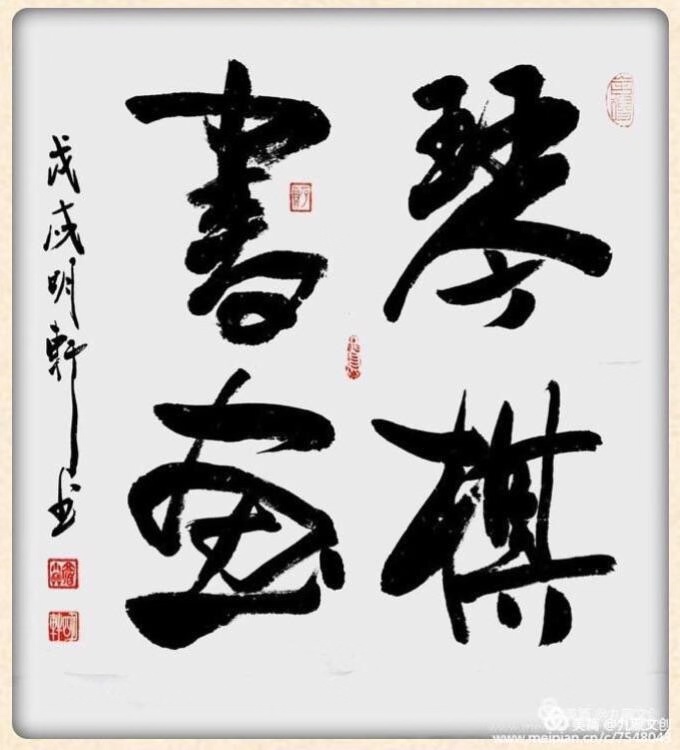 琴棋
書畫
戊戌明軒书
美篇 @九珑文创
www.meipian.cn/c/7548043